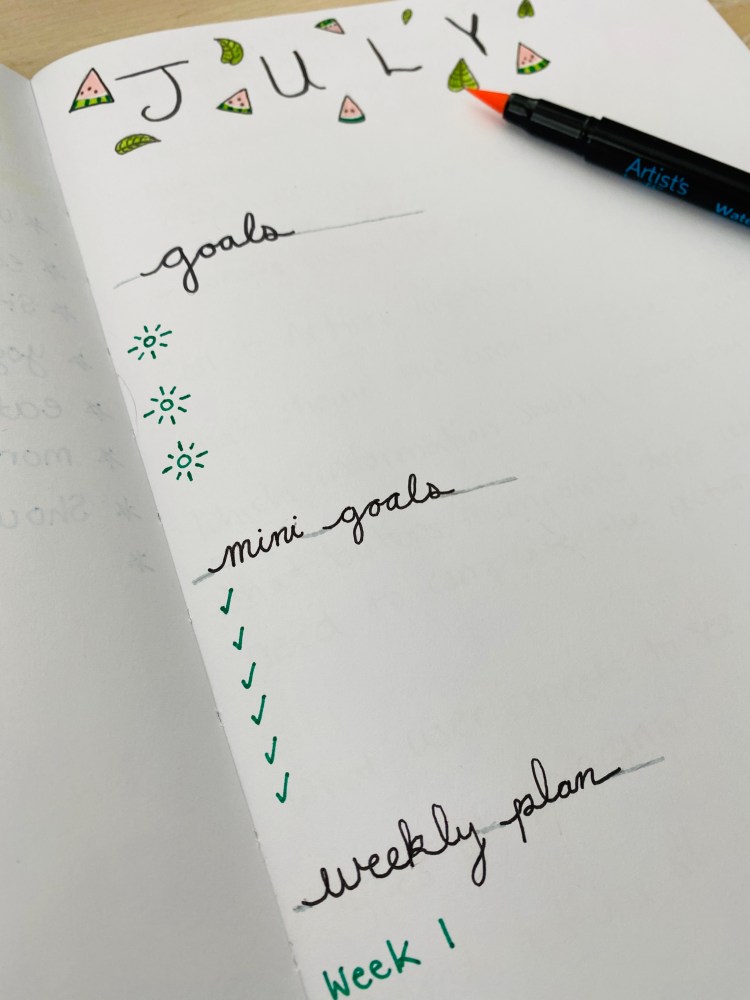 JULY
Artist's
goals
mini goals
weekly plan
Week 1